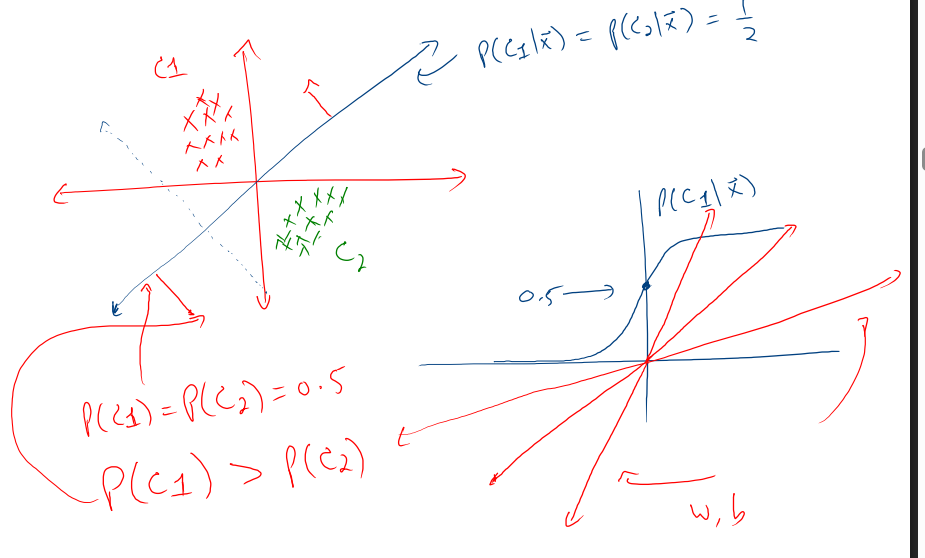 P(C1|x⃗) = P(C2|x⃗) = 1/2
C1
P(C1|x⃗)
C2
0.5
P(C1) = P(C2) = 0.5
P(C1) > P(C2)
w, b